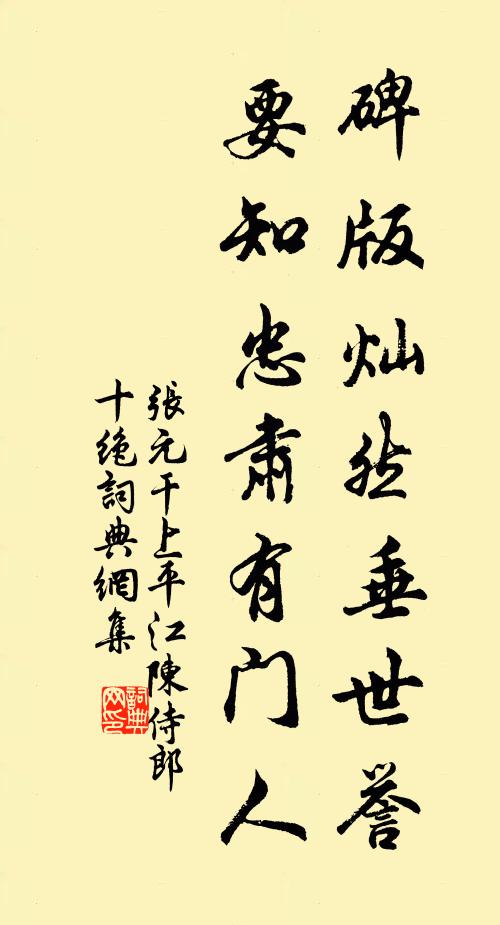 碑版灿然垂世誉
要知忠肅有門人
張元干上平江陳侍郎
十绝詞典網集
詞典网印